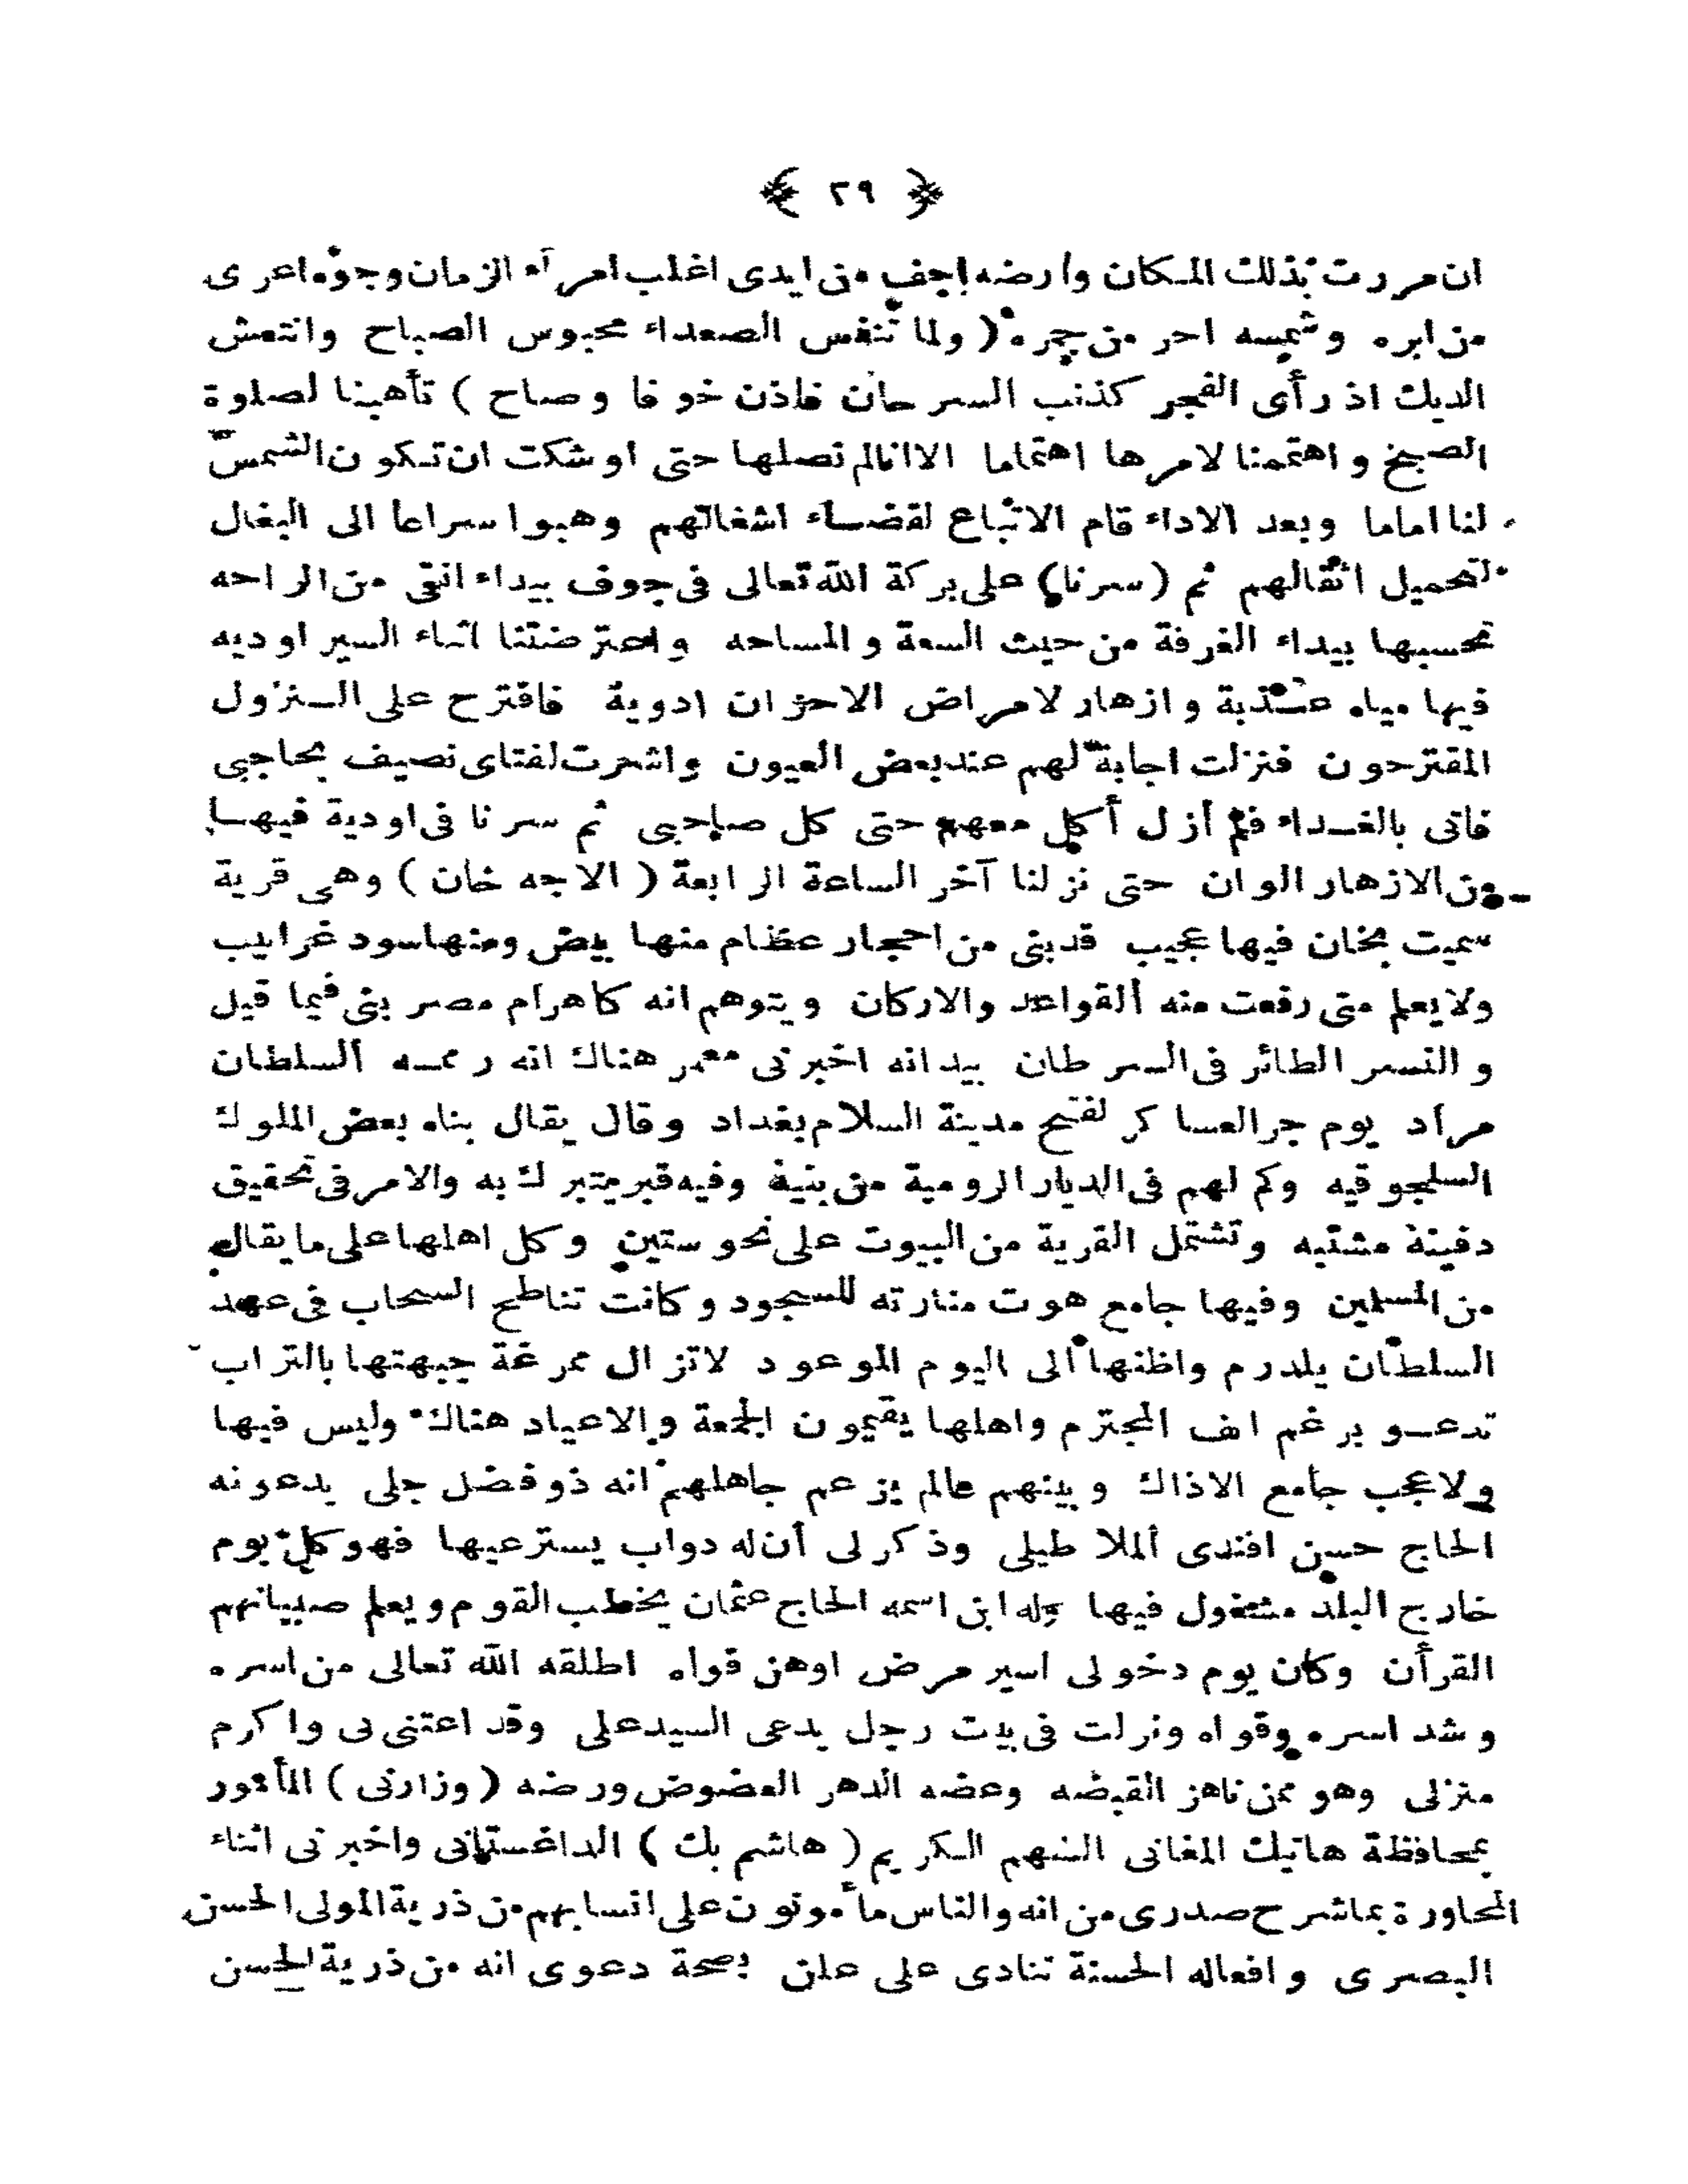 ﴿ ٢٩ ﴾
ان مررت بذلك المكان وارضه اجف من ايدى اغلب امرآء الزمان وجوه اعرى
من ابره وشمسه احر من جمره ( ولما تنفس الصعداء محبوس الصباح وانتعش
الديك اذ رأى الفجر كذنب السرحان فاذن خوفا وصاح ) تأهبنا لصلوة
الصبح واهتممنا لامرها اهتماما الا انا لم نصلها حتى اوشكت ان تكون الشمس
لنا اماما وبعد الاداء قام الاتباع لقضاء اشغالهم وهبوا سراعا الى البغال
لتحميل اثقالهم ثم (سرنا) على بركة الله تعالى فى جوف بيداء انقى من الراحه
تحسبها بيداء الغرفة من حيث السعة والمساحه واعترضتنا اثناء السير اوديه
فيها مياه عذبة وازهار لامراض الاحزان ادوية فاقترح على النزول
المقترحون فنزلت اجابة لهم عند بعض العيون واشرت لفتاى نصيف بحاجبى
فاتى بالغداء فلم أزل أكل معهم حتى كل صاحبى ثم سرنا فى اودية فيها
من الازهار الوان حتى نزلنا آخر الساعة الرابعة ( الاجه خان ) وهى قرية
سميت بخان فيها عجيب قد بنى من احجار عظام منها بيض ومنها سود غرابيب
ولا يعلم متى رفعت منه القواعد والاركان ويتوهم انه كاهرام مصر بنى فيما قيل
والنسر الطائر فى السرطان بيد انه اخبرنى معمر هناك انه رممه السلطان
مراد يوم جر العساكر لفتح مدينة السلام بغداد وقال يقال بناه بعض الملوك
السلجوقيه وكم لهم فى الديار الرومية من بنية وفيه قبر يتبرك به والامر فى تحقيق
دفينة مشتبه وتشتمل القرية من البيوت على نحو ستين وكل اهلها على ما يقال
من المسلمين وفيها جامع هوت منارته للسجود وكانت تناطح السحاب فى عهد
السلطان يلدرم واظنها الى اليوم الموعود لاتزال ممرغة جبهتها بالتراب
تدعو برغم انف المجترم واهلها يقيمون الجمعة والاعياد هناك وليس فيها
ولا عجب جامع الاذاك وبينهم عالم يزعم جاهلهم انه ذو فضل جلى يدعونه
الحاج حسين افندى الملا طيلى وذكر لى أن له دواب يسترعيها فهو كل يوم
خارج البلد مشغول فيها وله ابن اسمه الحاج عثمان يخطب القوم ويعلم صبيانهم
القرأن وكان يوم دخولى اسير مرض اوهن قواه اطلقه الله تعالى من اسره
وشد اسره وقواه ونزلت فى بيت رجل يدعى السيد على وقد اعتنى بى واكرم
منزلى وهو ممن ناهز القبضه وعضه الدهر العضوض ورضه ( وزارنى ) المأمور
بمحافظة هاتيك المغانى الشهم الكريم ( هاشم بك ) الداغستانى واخبرنى اثناء
المحاورة بما شرح صدرى من انه والناس مأمونون على انسابهم من ذرية المولى الحسن
البصرى وافعاله الحسنة تنادى على علن بصحة دعوى انه من ذرية الحسن